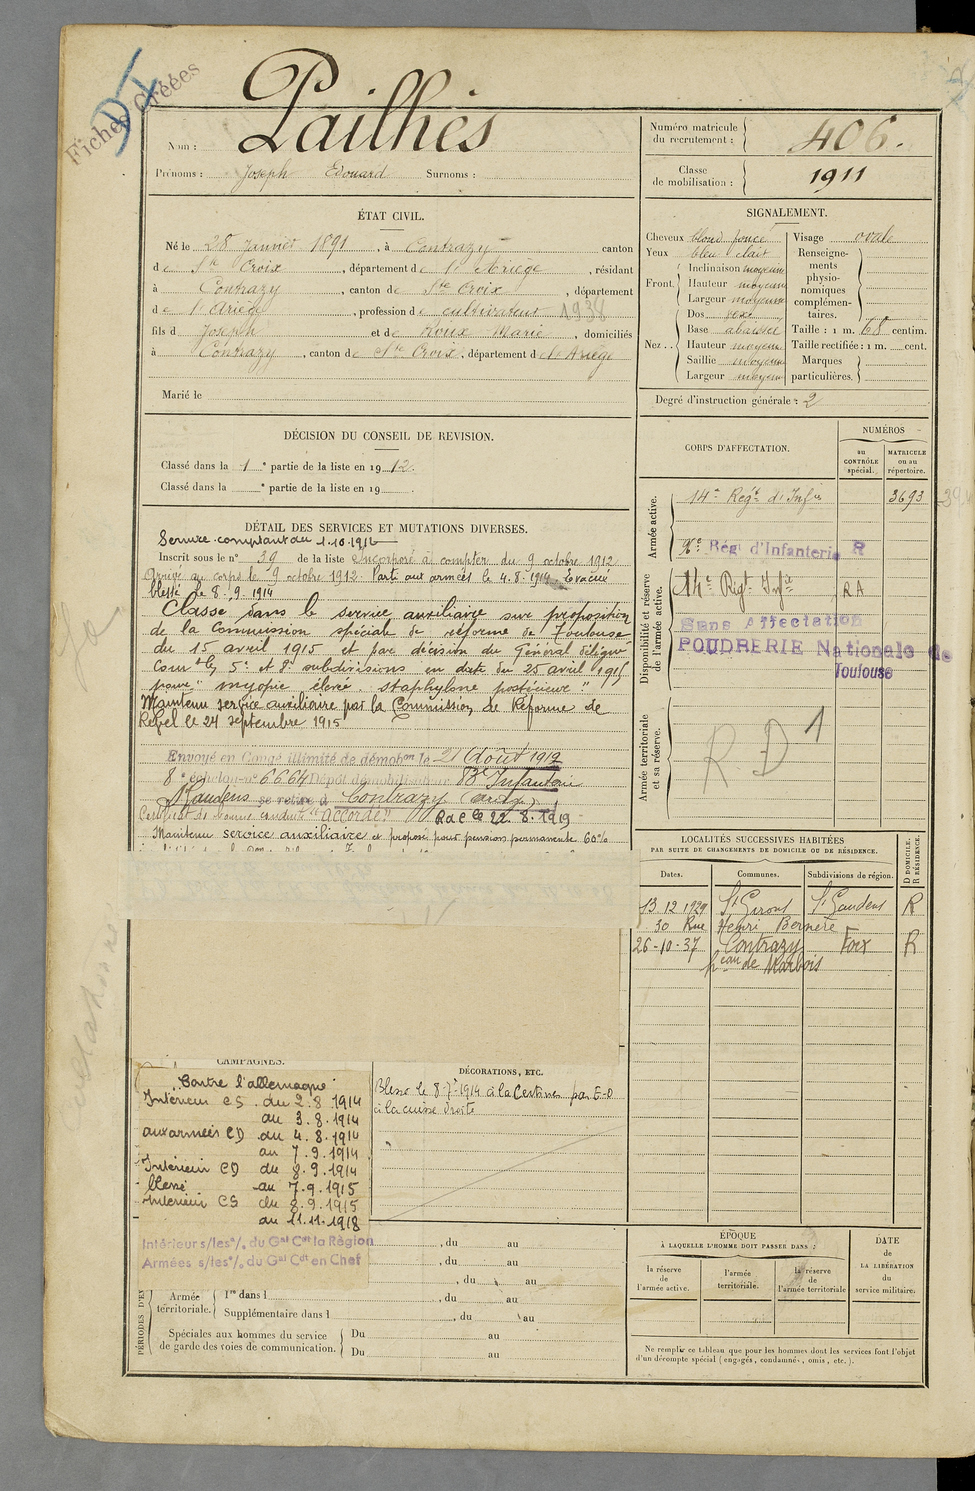 Fiches Créées
Nom : Pailhès
Prénoms : Joseph Edouard Surnoms :
Numéro matricule du recrutement : 406.
Classe de mobilisation : 1911
ÉTAT CIVIL.
Né le 28 Janvier 1891, à Contrazy canton
de Ste Croix, département de l'Ariège, résidant
à Contrazy, canton de Ste Croix, département
de l'Ariège, profession de cultivateur 1938
fils de Joseph et de Roux Marie, domiciliés
à Contrazy, canton de Ste Croix, département de l'Ariège
Marié le
SIGNALEMENT.
Cheveux blond foncé
Yeux bleu clair
Front. Inclinaison moyenne
Hauteur moyenne
Largeur moyenne
Nez. Dos vexe
Base abaissée
Hauteur moyenne
Saillie moyenne
Largeur moyenne
Visage ovale
Renseignements physionomiques complémentaires.
Taille : 1 m. 68 centim.
Taille rectifiée : 1 m. cent.
Marques particulières.
Degré d'instruction générale : 2
DÉCISION DU CONSEIL DE REVISION.
Classé dans la 1e partie de la liste en 1912.
Classé dans la e partie de la liste en 19 .
DÉTAIL DES SERVICES ET MUTATIONS DIVERSES.
Service comptant du 1.10.1912
Inscrit sous le n° 39 de la liste Incorporé à compter du 9 octobre 1912
Arrivé au corps le 9 octobre 1912. Parti aux armées le 4.8.1914. Evacué
blessé le 8.9.1914
Classé dans le service auxiliaire sur proposition
de la Commission spéciale de réforme de Toulouse
du 15 avril 1915 et par décision du Général délégué
Comt les 5e et 8e subdivisions en date du 25 avril 1915
pour " myopie élevée. staphylome postérieur "
Maintenu service auxiliaire par la Commission de Réforme de
Revel le 24 septembre 1915
Envoyé en Congé illimité de démobon le 21 Août 1919
8e échelon n° 6664 Dépôt démobilisateur 83e Infanterie
se retire à Contrazy (Ariège)
Certificat de bonne conduite "accordé" RdC le 22.8.1919
Maintenu service auxiliaire et proposé pour pension permanente 60%
CORPS D'AFFECTATION.
NUMÉROS
au CONTRÔLE spécial.
MATRICULE ou au répertoire.
Armée active.
14e Régt d'Infie 3693
Disponibilité et réserve de l'armée active.
Régt d'Infanterie R
14e Régt Infie RA
Sans Affectation
POUDRERIE Nationale de
Toulouse
Armée territoriale et sa réserve.
R D 1
LOCALITÉS SUCCESSIVES HABITÉES
PAR SUITE DE CHANGEMENTS DE DOMICILE OU DE RÉSIDENCE.
Dates. Communes. Subdivisions de région. D DOMICILE. R RÉSIDENCE.
13.12.1929 St Girons St Gaudens R
30 Rue Henri Bernère
26-10-37 Contrazy Foix R
heau de Marbois
CAMPAGNES.
Contre l'allemagne
Intérieur CS. du 2.8.1914
au 3.8.1914
aux armées CD du 4.8.1914
au 7.9.1914
Intérieur CD du 8.9.1914
blessé au 7.9.1915
Intérieur CS du 8.9.1915
au 11.11.1918
Intérieur s/les o/. du Gal Cdt la Région
Armées s/les o/. du Gal Cdt en Chef
DÉCORATIONS, ETC.
Blessé le 8-7bre-1914 à la Certines par E-O
à la cuisse droite
, du au
, du au
, du au
Armée territoriale.
1re dans l , du au
Supplémentaire dans l , du au
Spéciales aux hommes du service de garde des voies de communication.
Du au
Du au
ÉPOQUE
À LAQUELLE L'HOMME DOIT PASSER DANS :
la réserve de l'armée active.
l'armée territoriale.
la réserve de l'armée territoriale
DATE DE LA LIBÉRATION du service militaire.
Ne remplir ce tableau que pour les hommes dont les services font l'objet
d'un décompte spécial (engagés, condamnés, omis, etc.).